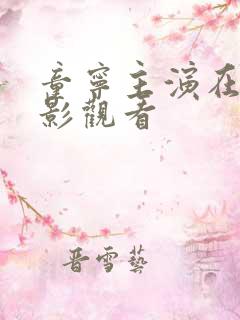 童寧主演在
影觀看
晋雪藝